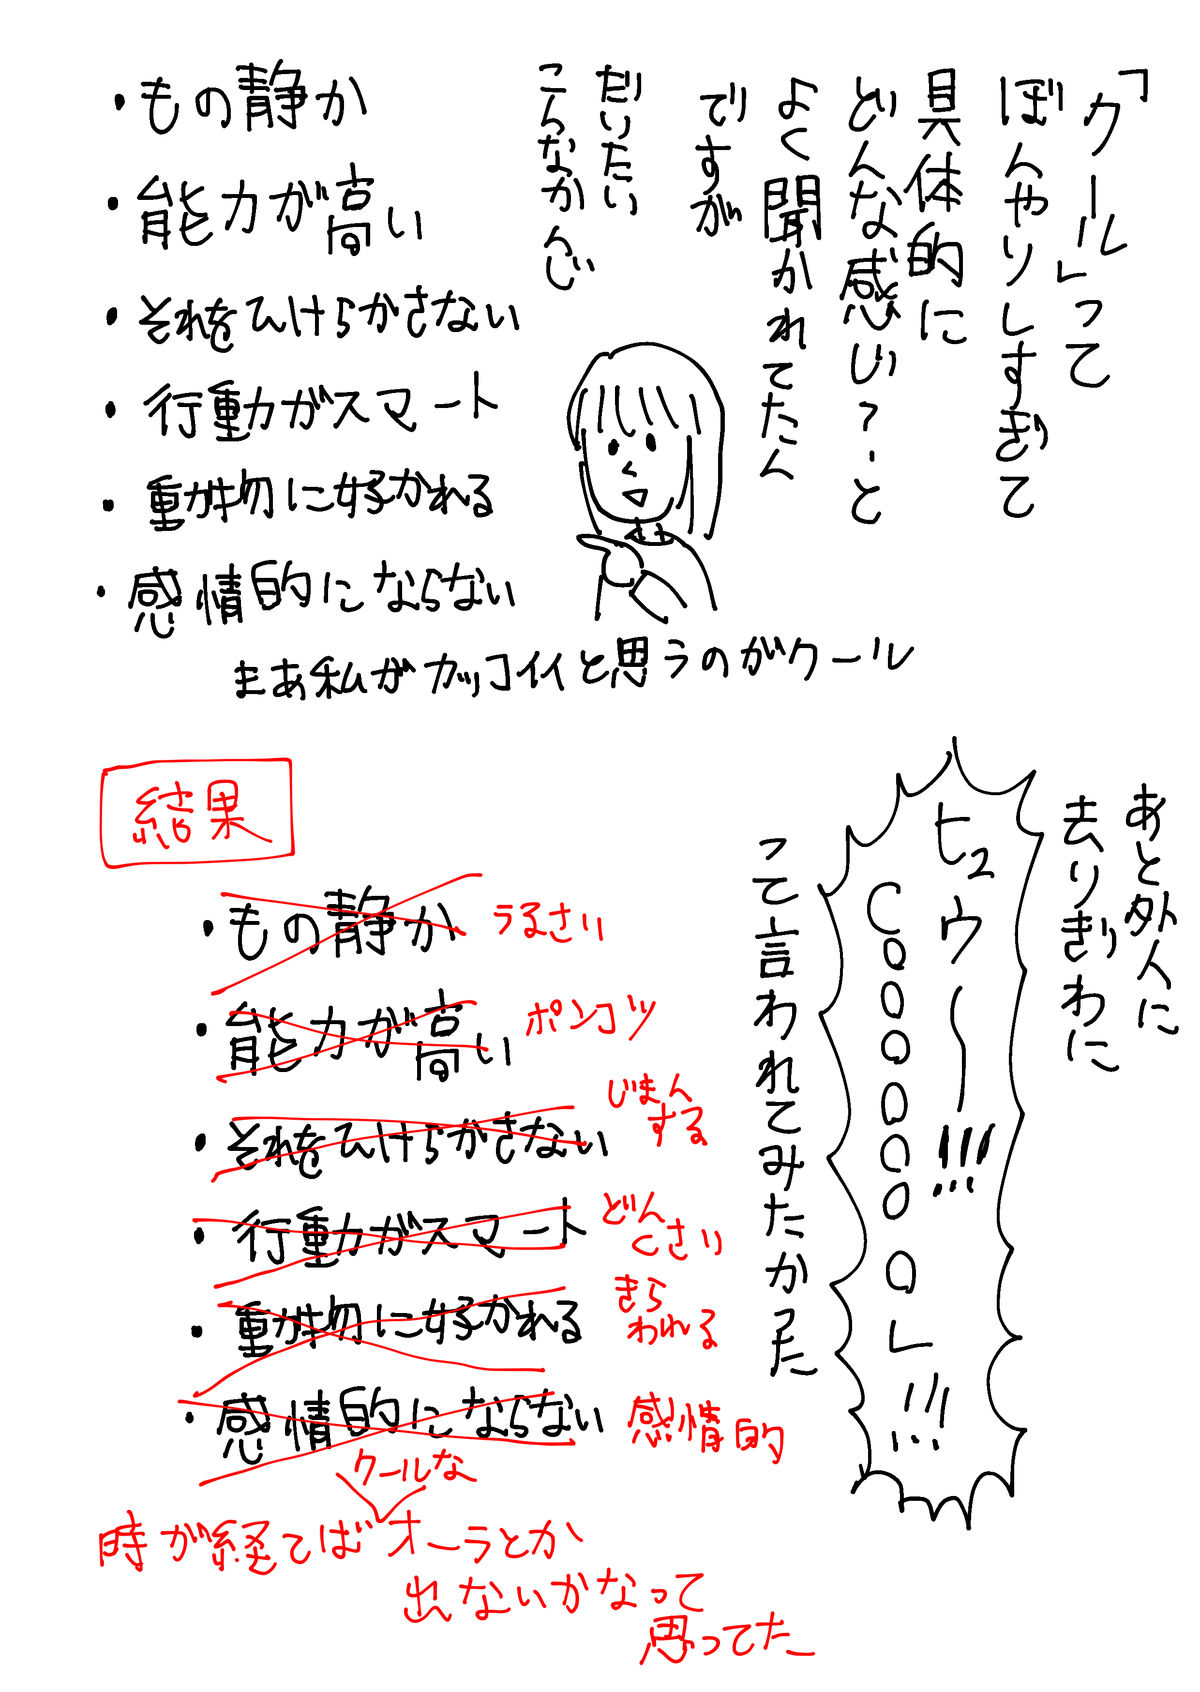 「クール」って
ぼんやりしすぎて
具体的に
どんな感じ?-と
よく聞かれてたん
ですが
だいたい
こんなかんじ
・もの静か
・能力が高い
・それをひけらかさない
・行動がスマート
・動物に好かれる
・感情的にならない
まあ私がカッコイイと思うのがクール
あと外人に
去りぎわに
ヒュウ〜!!!
COOOOOOOL!!!
って言われてみたかった
結果
・もの静か うるさい
・能力が高い ポンコツ
・それをひけらかさない じまん
する
・行動がスマート どん
くさい
・動物に好かれる きら
われる
・感情的にならない 感情的
クールな
時が経てばオーラとか
出ないかなって
思ってた